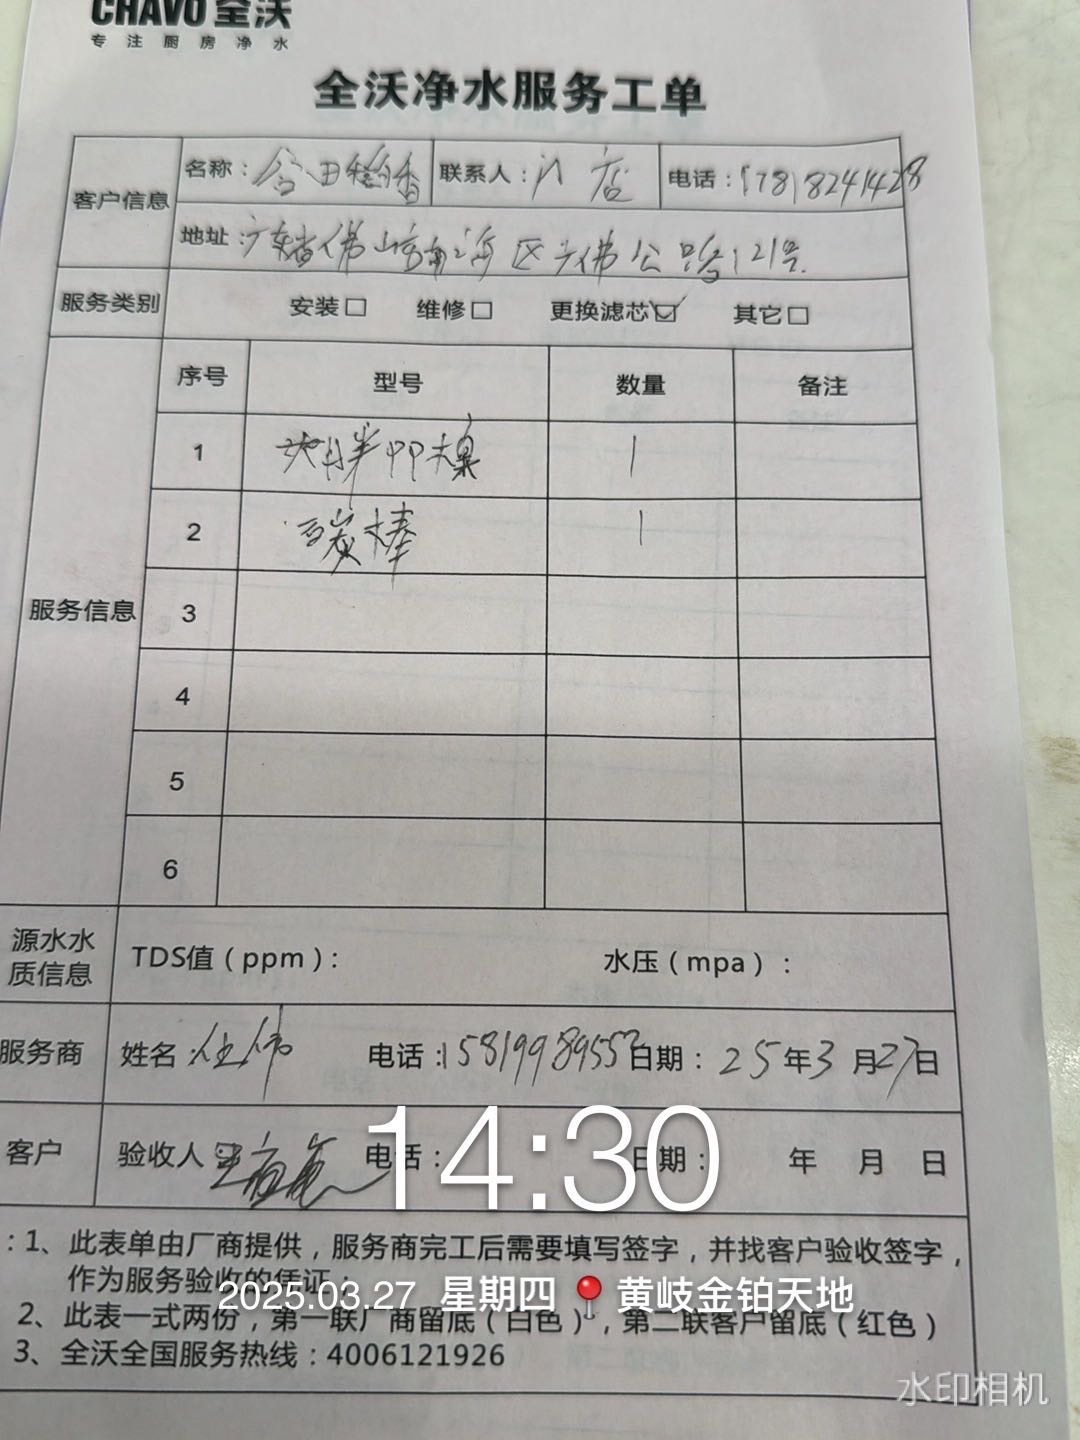 CHAVO 全沃
专注厨房净水
全沃净水服务工单
客户信息 名称： 联系人：门店 电话：17818241428
地址：广东省佛山市南海区广佛公路121号
服务类别 安装□ 维修□ 更换滤芯☑ 其它□
服务信息 序号 型号 数量 备注
1 PP棉 1
2 碳棒 1
3
4
5
6
源水水质信息 TDS值（ppm）： 水压（mpa）：
服务商 姓名：任伟 电话：15819989553 日期：25年3月27日
客户 验收人 电话： 日期： 年 月 日
14:30
：1、此表单由厂商提供，服务商完工后需要填写签字，并找客户验收签字，
作为服务验收的凭证；
2025.03.27 星期四 黄岐金铂天地
2、此表一式两份，第一联厂商留底（白色），第二联客户留底（红色）
3、全沃全国服务热线：4006121926
水印相机